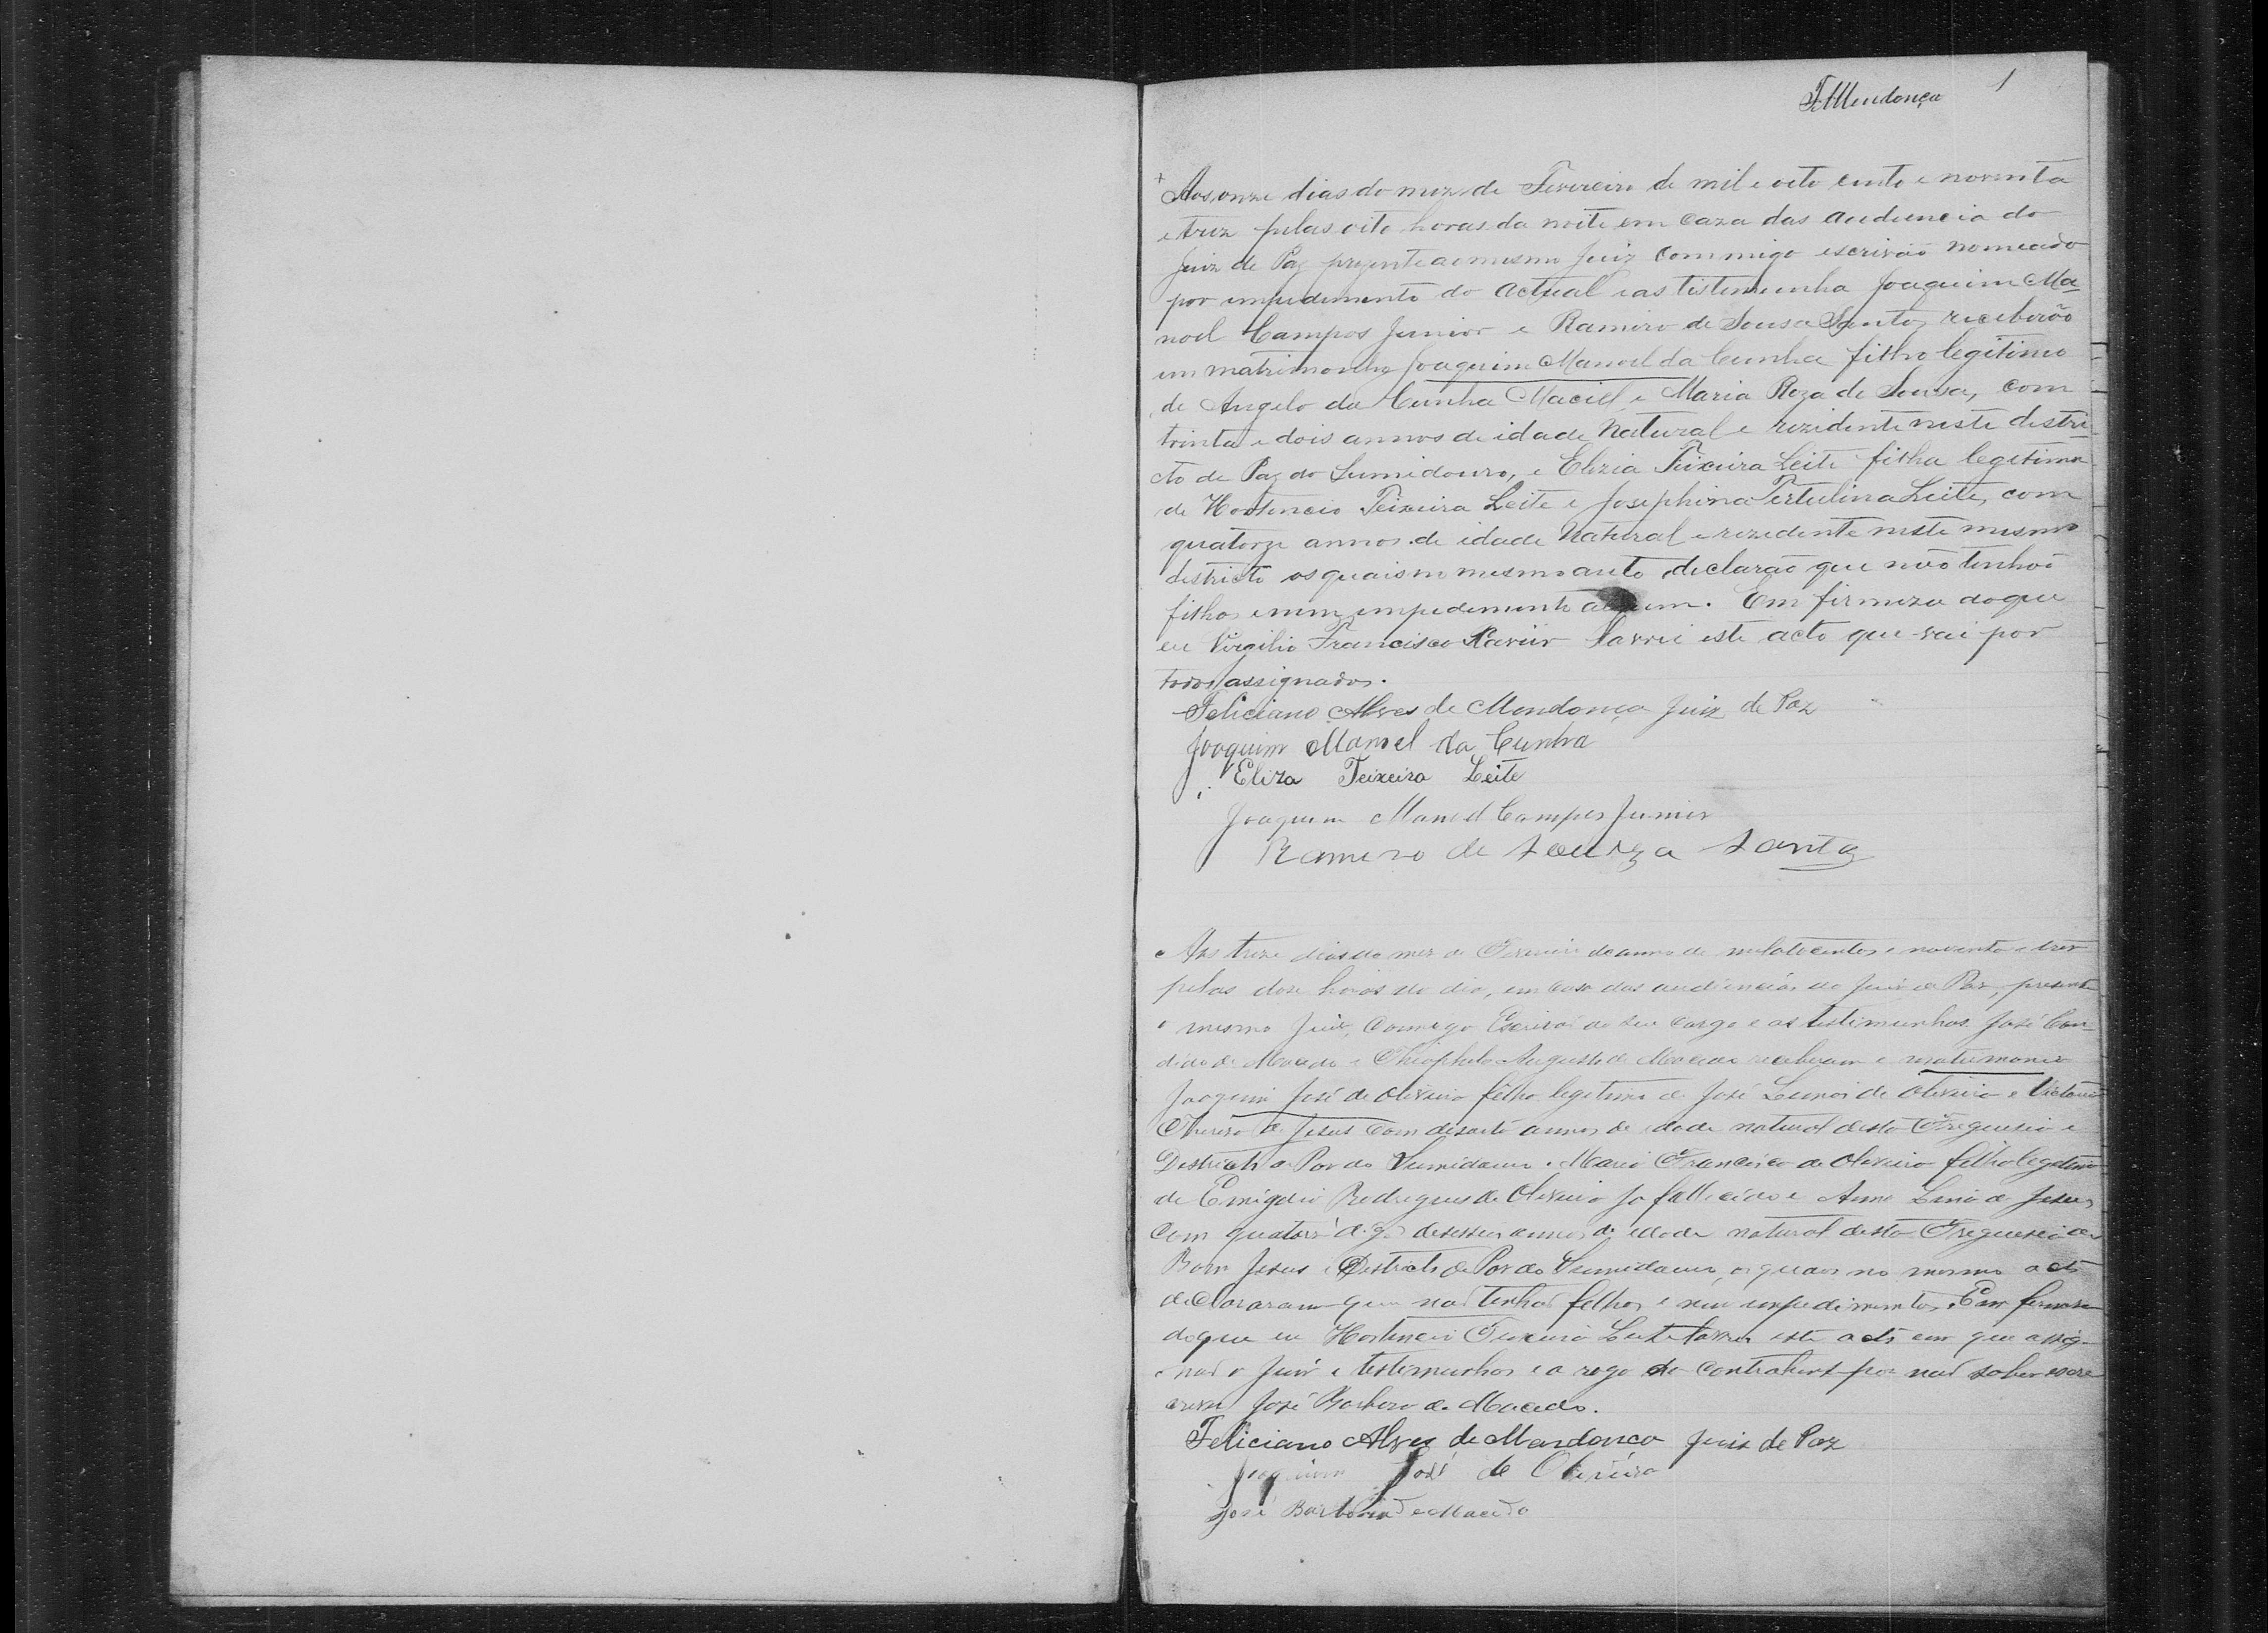 FAMendonça 1
Aos onze dias do mez de Fevereiro de mil e oito cento e noventa
e trez pelas oito horas da noite em caza das audiencia do
Juiz de Paz prezente ao mesmo Juiz commigo escrivão nomeado
por empedimento do actual e as testemunha Joaquim Ma-
noel Campos Junior e Ramiro de Sousa Santos receberão
em matrimonho Joaquim Manoel da Cunha filho legitimo
de Angelo da Cunha Maciel e Maria Roza de Sousa, com
trinta e dois annos de idade natural e rezidente neste distri-
cto de Paz do Sumidouro, e Elizia Teixeira Leite filha legitima
de Hortencio Teixeira Leite e Josephina Tertulina Leite, com
quatorze annos de idade natural e rezidente neste mesmo
districto os quais no mesmo aucto declarão que não tenhão
filhos e nem empedimento algum. Em firmeza do que
eu Virgilio Francisco Xavier lavrei este acto que vai por
todos assignados.
Feliciano Alves de Mendonça Juiz de Paz
Joaquim Manoel da Cunha
Eliza Teixeira Leite
Joaquim Manoel Campos Junior
Ramiro de Souza Santos
Aos treze dias do mez de Fevereiro do anno de mil oitocentos e noventa e trez
pelas doze horas do dia, em casa das audiencias do Juiz de Paz, presente
o mesmo Juiz, Comigo Escrivão do seu cargo e as testimunhas José Can-
dido de Macedo e Theophilo Augusto de Macedo receberam e matrimonio
Joaquim José de Oliveira filho legitimo de José Lemos de Oliveira e
Thereza de Jesus com desoito annos de idade natural desta Freguesia e
Districto de Paz do Sumidouro e Maria Francisca de Oliveira filha legitima
de Emigdio Rodrigues de Oliveira ja fallecido e Anna de Jesus
com quatorz digo desesseis annos de idade natural desta Freguesia de
Bom Jesus e Districto de Paz do Sumidouro, os quaes no mesmo acto
declararam que não tenhão filhos e nem impedimentos. Em firmesa
do que eu Hortencio Teixeira Leite lavrei este acto em que assig-
não o Juiz e testemunhas e a rogo da contrahente por não saber escre
ver José Barboza de Macedo.
Feliciano Alves de Mendonça Juiz de Paz
Joaquim José de Oliveira
José Barboza de Macedo